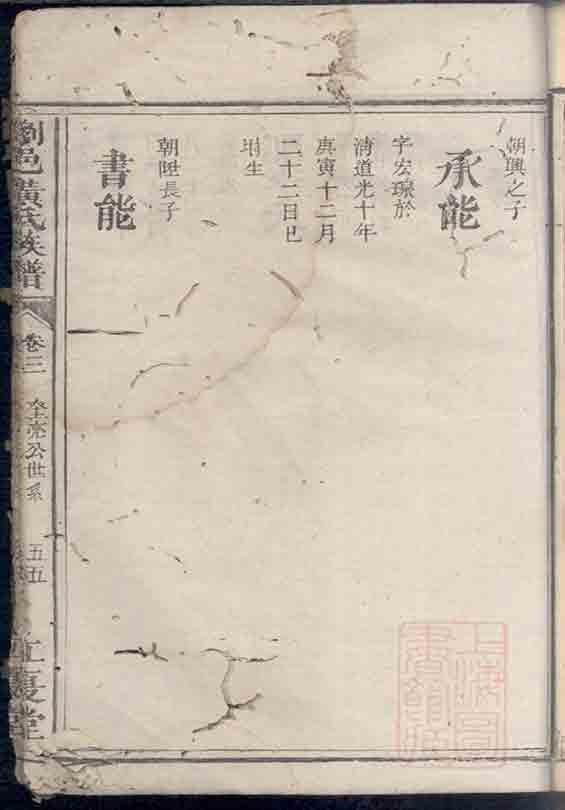 朝興之子
承能
字宏璨於
清道光十年
庚寅十二月
二十二日巳
時生
朝陞長子
書能
劉邑黃氏族譜
卷三
公世系
五五
江夏堂
上海圖
書館